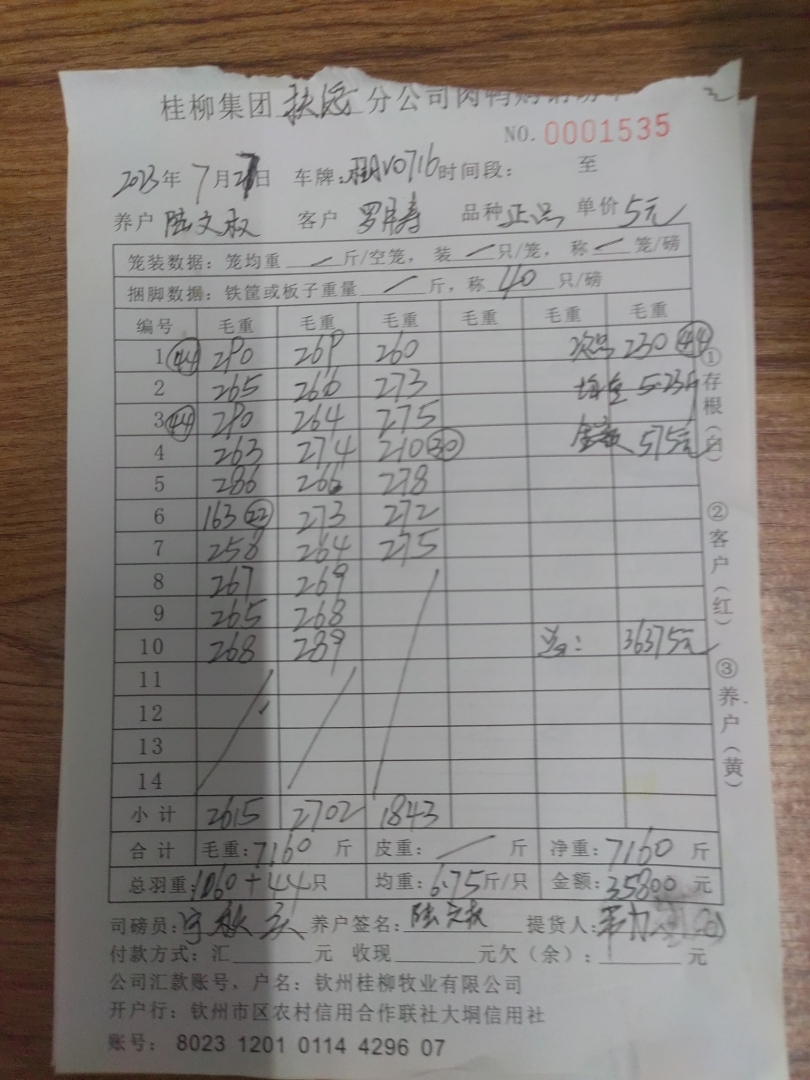 桂柳集团 扶绥 分公司肉鸭购销
NO. 0001535
2023年 7月27日 车牌: V0716 时间段: 至
养户 陆文权 客户 罗月寿 品种 正品 单价 5元
笼装数据: 笼均重 / 斤/空笼, 装 / 只/笼, 称 / 笼/磅
捆脚数据: 铁筐或板子重量 / 斤, 称 40 只/磅
编号 毛重 毛重 毛重 毛重 毛重 毛重
1 (44) 290 269 260 次品 230 (44)
2 265 266 273 均重 5.23斤
3 (44) 290 264 275 金额 575元
4 263 274 210 (30)
5 286 266 278
6 163 (22) 273 272
7 258 264 275
8 267 269
9 265 268
10 268 289 总: 36375元
11
12
13
14
小计 2615 2702 1843
合计 毛重: 7160 斤 皮重: / 斤 净重: 7160 斤
总羽重: 1060+44 只 均重: 6.75 斤/只 金额: 35800 元
司磅员: 养户签名: 陆文权 提货人:
付款方式: 汇 元 收现 元欠(余): 元
公司汇款账号, 户名: 钦州桂柳牧业有限公司
开户行: 钦州市区农村信用合作联社大垌信用社
账号: 8023 1201 0114 4296 07
①存根(白) ②客户(红) ③养户(黄)